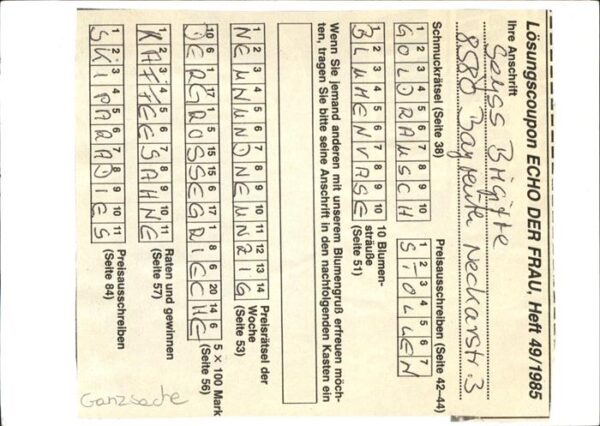 Lösungscoupon ECHO DER FRAU, Heft 49/1985
Ihre Anschrift
Brigitte
8580 Bayreuth Neckarstr. 3
Schmuckrätsel (Seite 38)
1 2 3 4 5 6 7 8 9 10
GOLDRAUSCH
Preisausschreiben (Seite 42–44)
1 2 3 4 5 6 7
STOLLEN
1 2 3 4 5 6 7 8 9 10
BLUMENVASE
10 Blumen-
sträuße
(Seite 51)
Wenn Sie jemand anderen mit unserem Blumengruß erfreuen möch-
ten, tragen Sie bitte seine Anschrift in den nachfolgenden Kasten ein
1 2 3 4 5 6 7 8 9 10 11 12 13 14
NEUNUNDNEUNZIG
Preisrätsel der
Woche
(Seite 53)
10 6 17 1 17 5 15 15 6 1 17 8 6 20 14 6
DERGROSSEGRIECHE
5 × 100 Mark
(Seite 56)
1 2 3 4 5 6 7 8 9 10 11
KAFFEESAHNE
Raten und gewinnen
(Seite 57)
1 2 3 4 5 6 7 8 9 10 11
SKIPARADIES
Preisausschreiben
(Seite 84)
Ganzsache